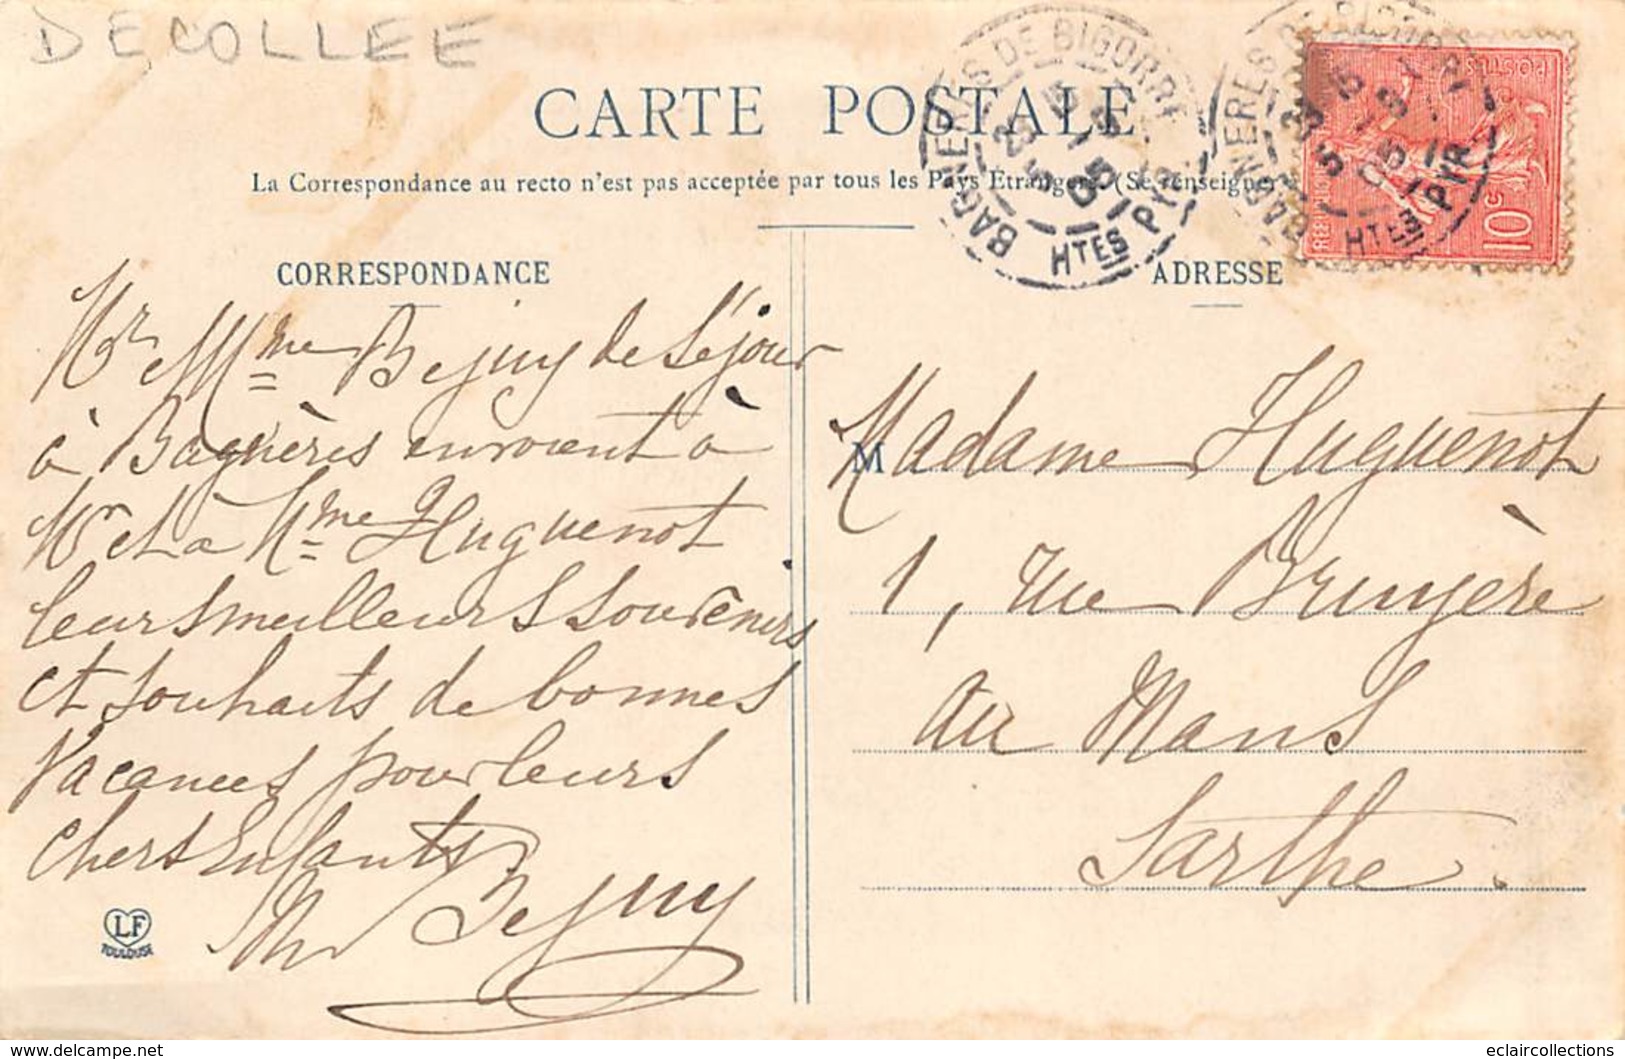 DECOLLEE
CARTE POSTALE
La Correspondance au recto n'est pas acceptée par tous les Pays Étrangers. (Se renseigner
BAGNERES DE BIGORRE
HTES PYR
BAGNERES DE BIGORRE
HTES PYR
POSTES
10c
CORRESPONDANCE
Mr et Mme Bejuy de Séjour
à Bagnères envoient à
Mr et à Mme Huguenot
leurs meilleurs souvenirs
et souhaits de bonnes
Vacances pour leurs
chers Enfants
Mr Bejuy
LF
TOULOUSE
ADRESSE
M Madame Huguenot
1, rue Bruyère
au Mans
Sarthe.
eclaircollections